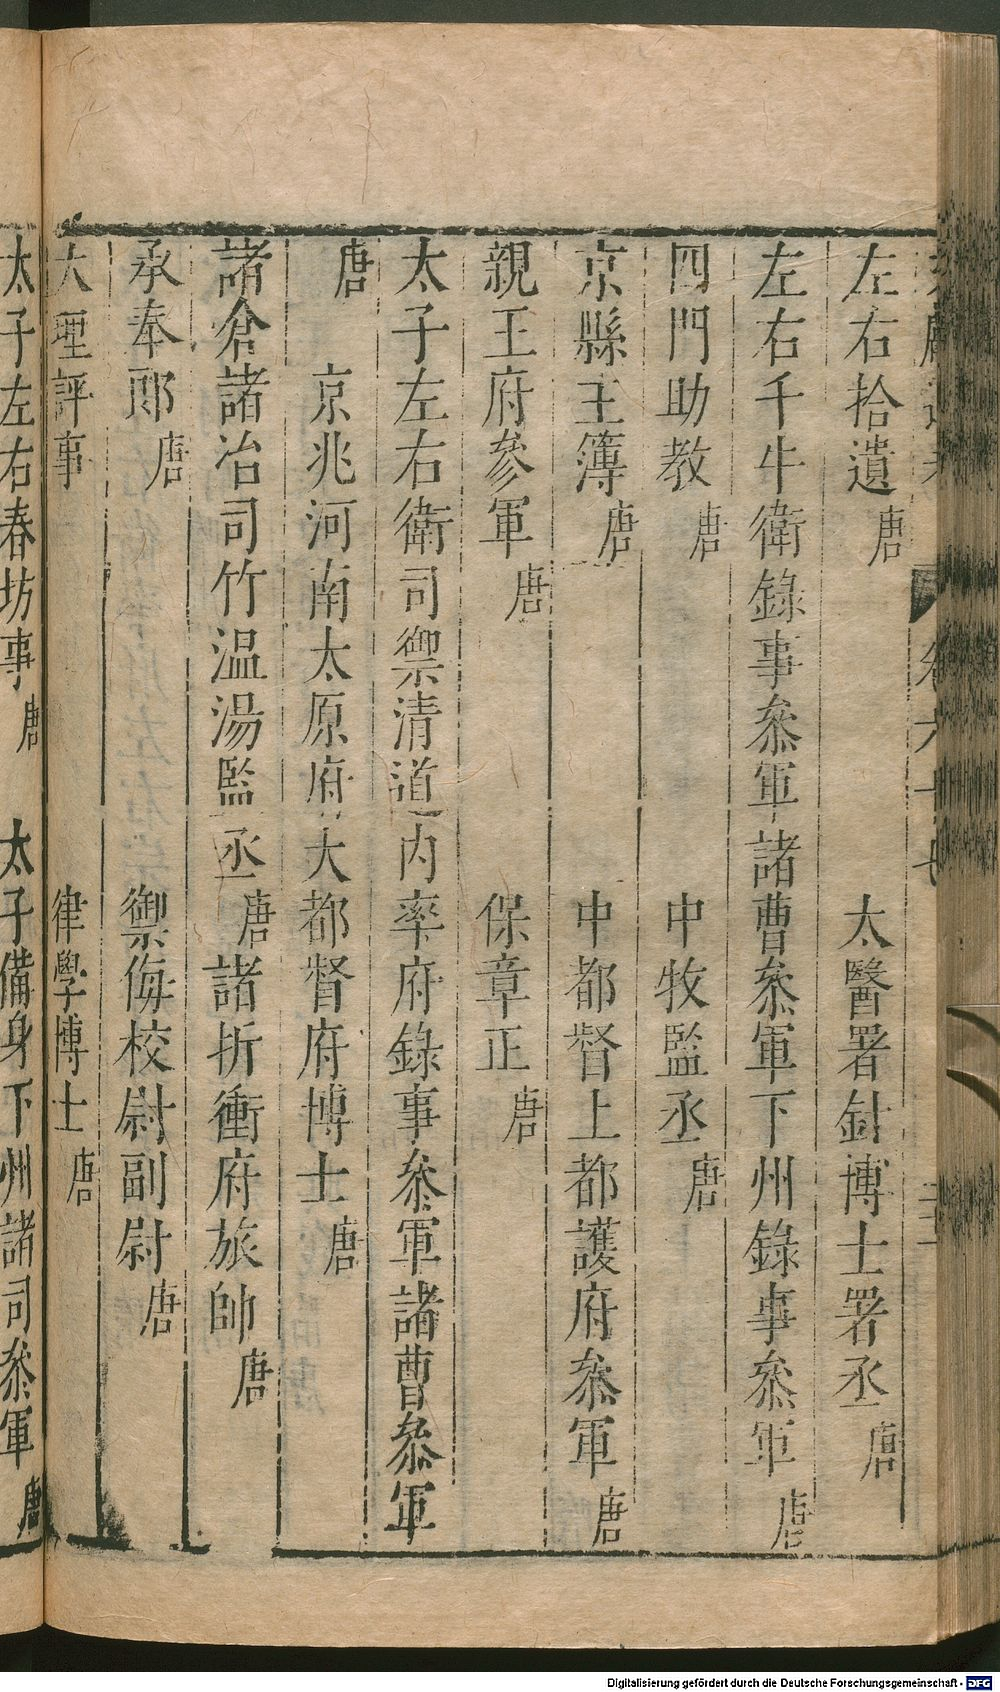 左右拾遺 唐 太醫署針博士署丞 唐
左右千牛衛錄事叅軍諸曹叅軍下州錄事叅軍 唐
四門助教 唐 中牧監丞 唐
京縣主簿 唐 中都督上都護府叅軍 唐
親王府參軍 唐 保章正 唐
太子左右衛司禦清道内率府錄事叅軍諸曹叅軍
唐 京兆河南太原府大都督府博士 唐
諸倉諸冶司竹温湯監丞 唐 諸折衝府旅帥 唐
承奉郎 唐 禦侮校尉副尉 唐
大理評事 律學博士 唐
太子左右春坊事 唐 太子備身下州諸司叅軍 唐
Digitalisierung gefördert durch die Deutsche Forschungsgemeinschaft - DFG